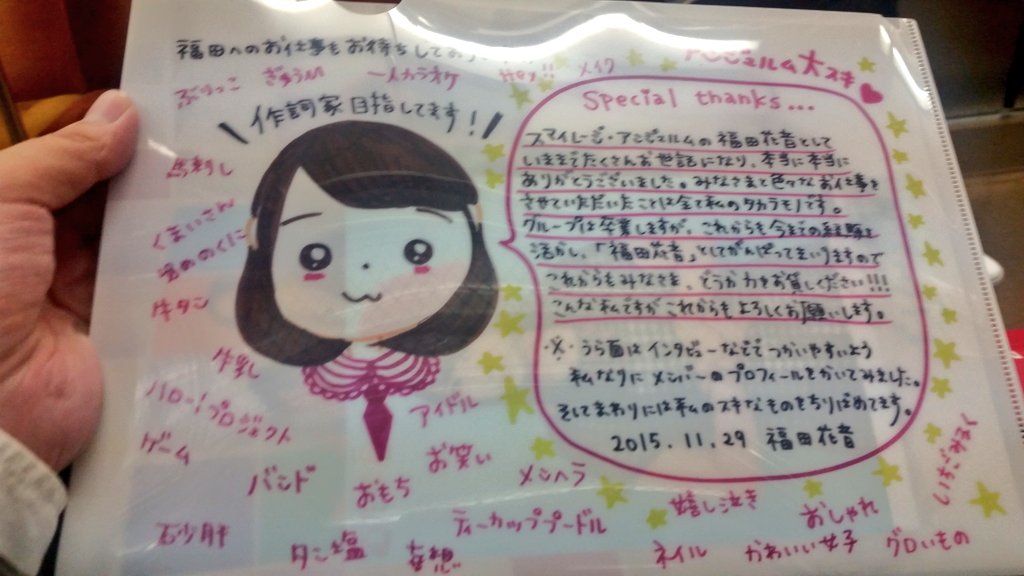 福田へのお仕事もお待ちしてお
アンジュルム大スキ
ぶりっこ ぎゅう 一人カラオケ Hey!! メイク
作詞家目指してます!
Special thanks...
スマイレージ・アンジュルムの福田花音として
いままでたくさんお世話になり、本当に本当に
ありがとうございました。みなさまと色々なお仕事を
させていただいたことは全て私のタカラモノです。
グループは卒業しますが、これからも今までの経験を
活かし、「福田花音」としてがんばってまいりますので
これからもみなさま、どうか力をお貸しください!!!
こんな私ですがこれからもよろしくお願いします。
※・うら面はインタビューなどでつかいやすいよう
私なりにメンバーのプロフィールをかいてみました。
そしてまわりには私のスキなものをちりばめてます。
2015.11.29 福田花音
馬刺し
くまいさん
固めのぐに
牛タン
牛乳
ハロー!プロジェクト
アイドル
ゲーム
お笑い
バンド
おもち
メンヘラ
いちごみるく
嬉し泣き
おしゃれ
ティーカッププードル
砂肝
タン塩
妄想
ネイル
かわいい女子
グロいもの